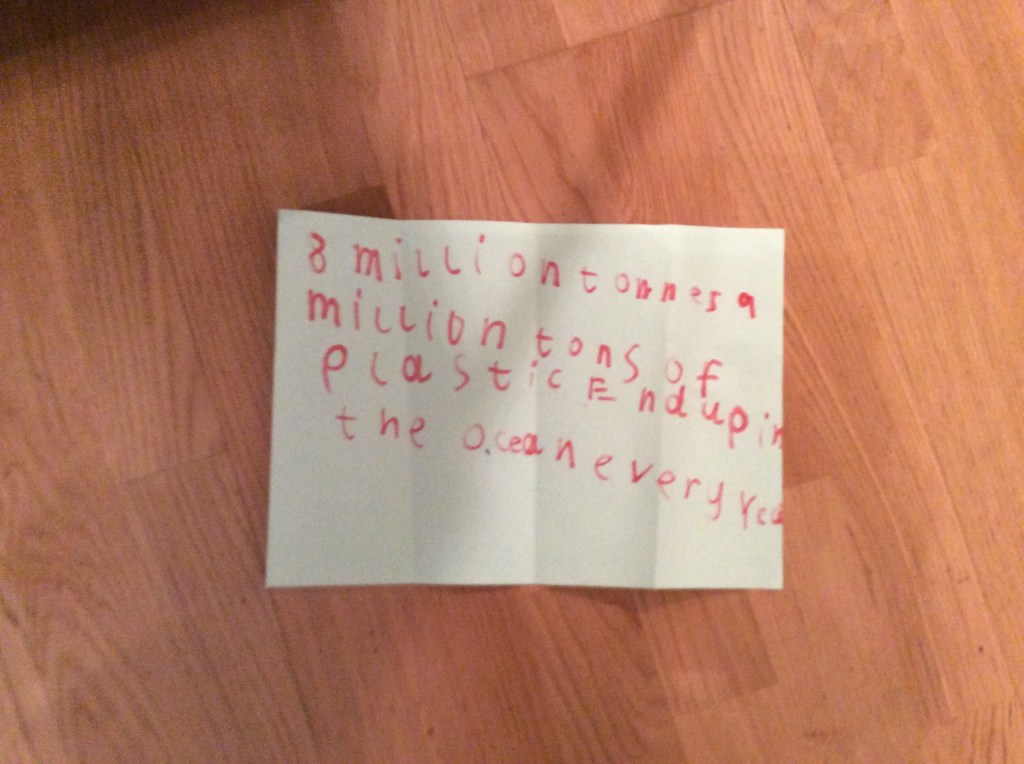 8 million tonnes 9
million tons of
Plastic End up in
the Ocean every Yea